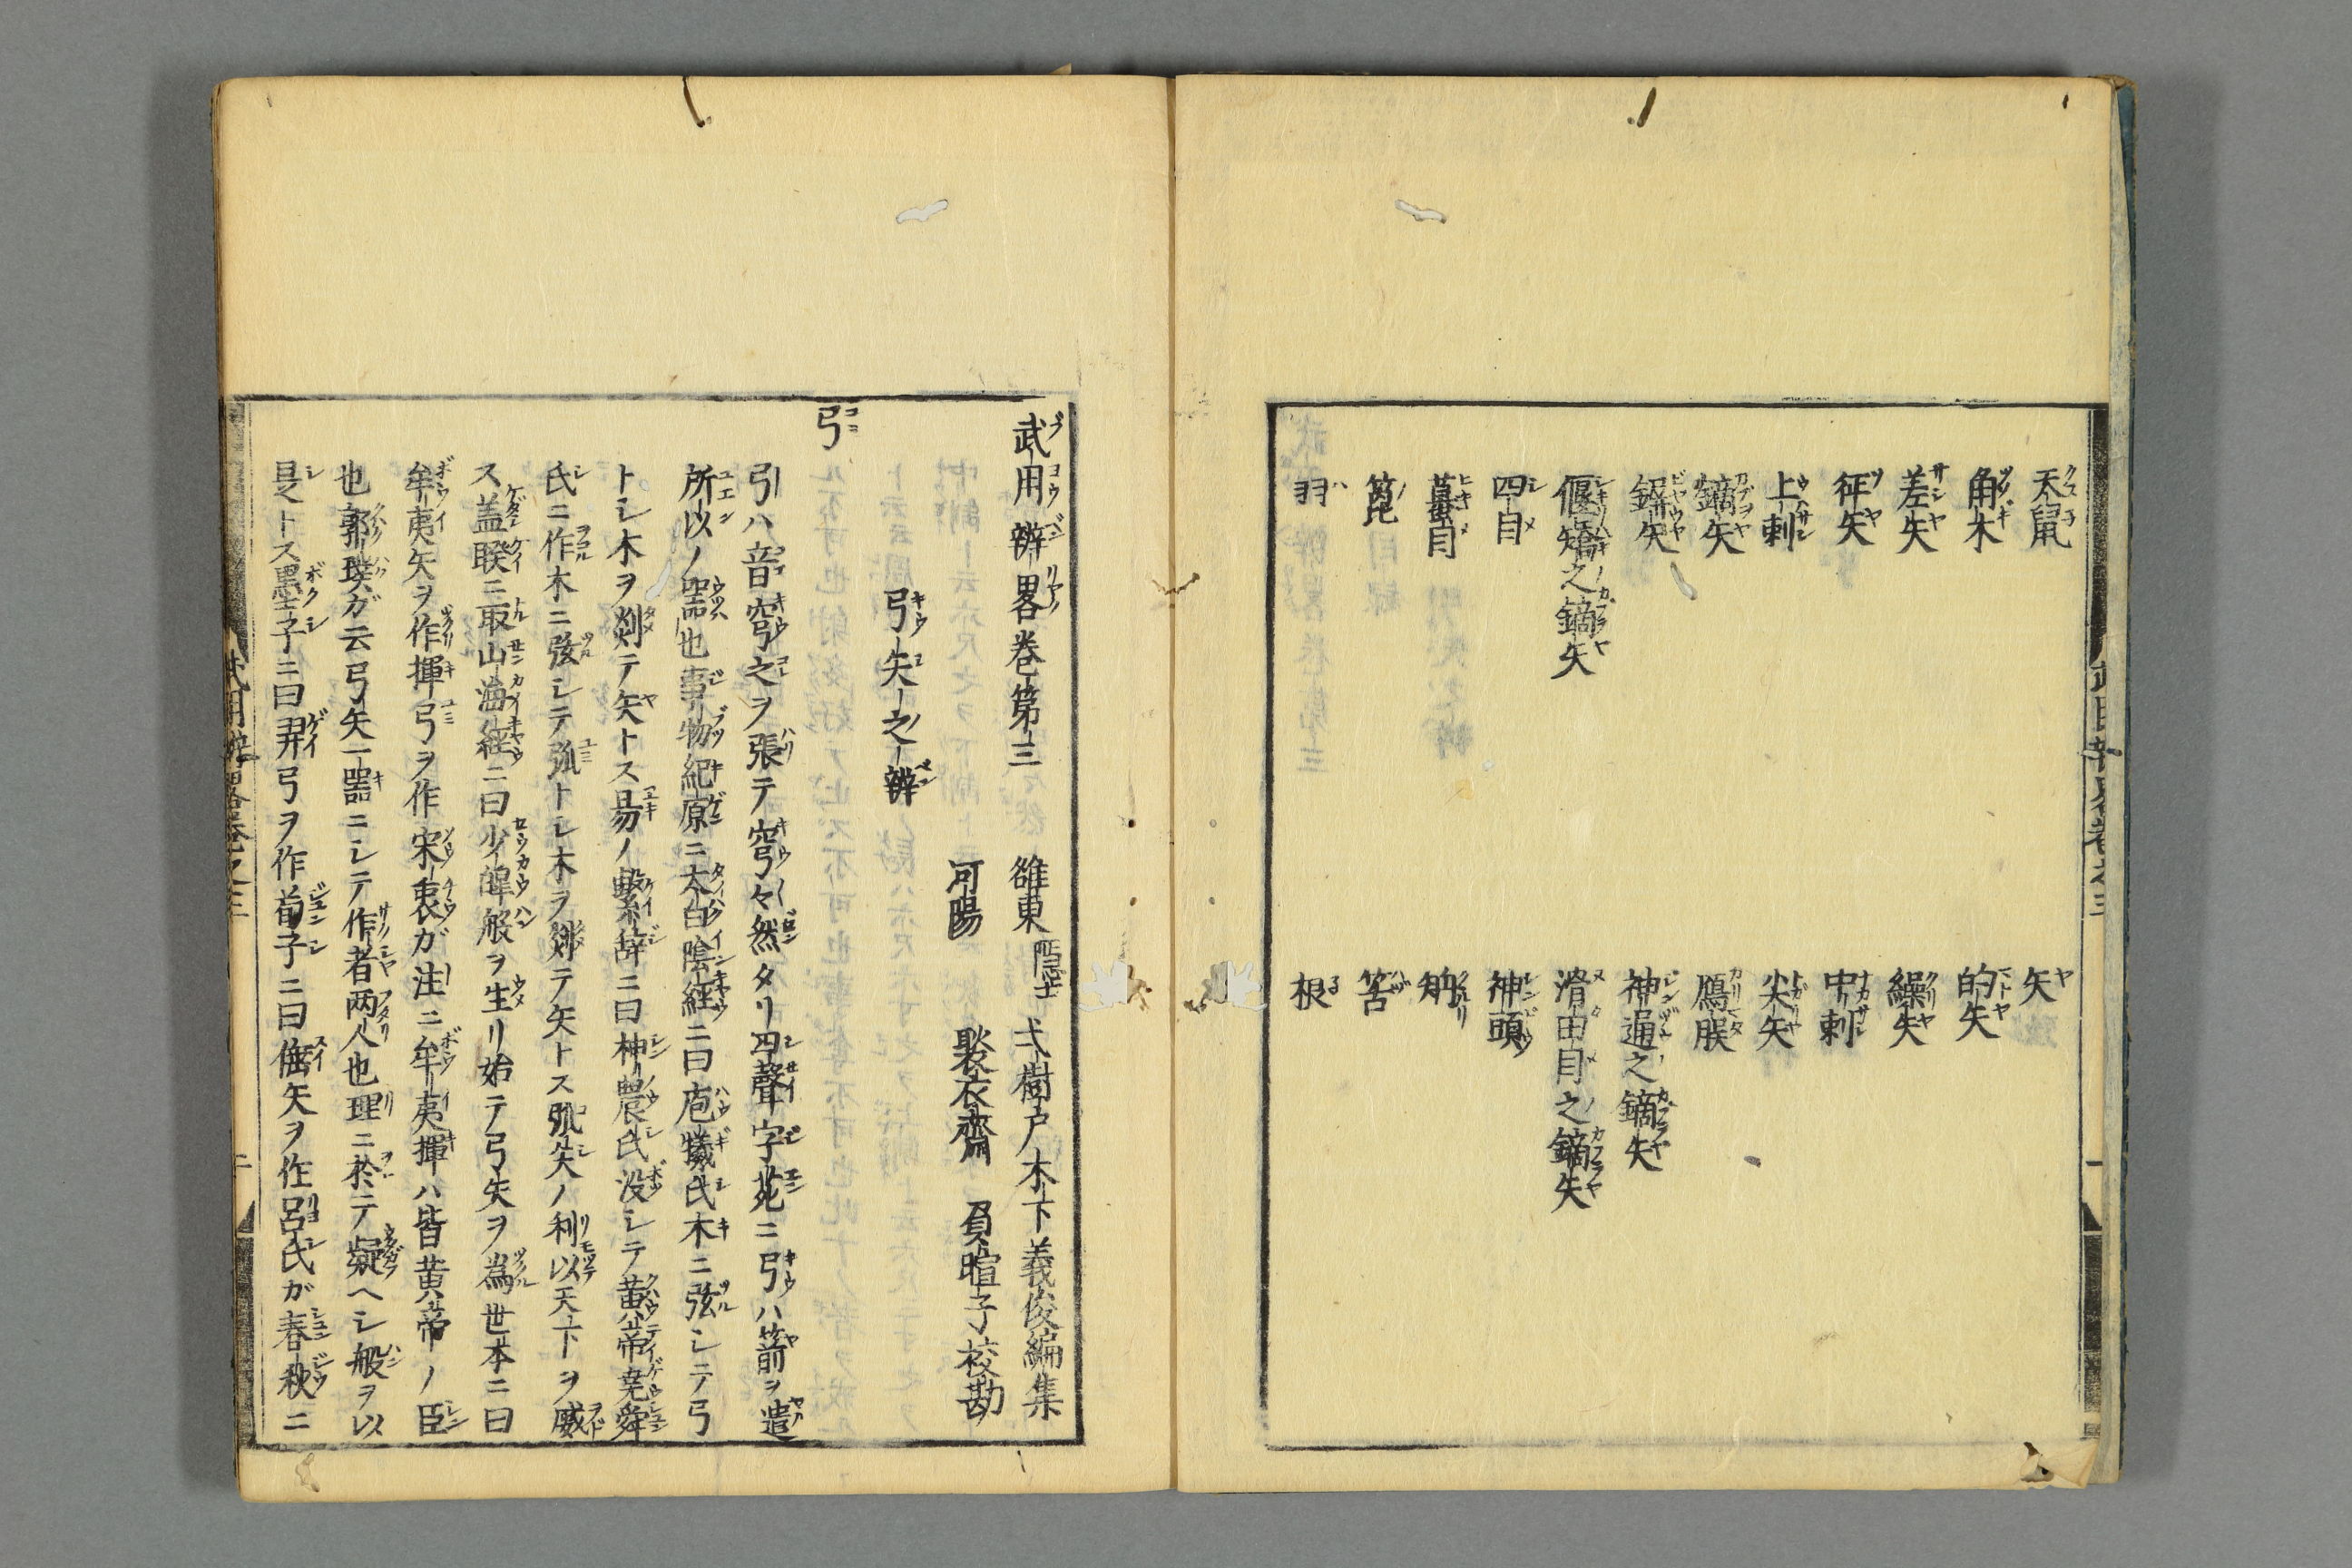 天鼠
矢
角木
的矢
差矢
繰矢
征矢
中刺
上刺
尖矢
鏑矢
鴈胯
鋿矢
神通之鏑矢
偃矯之鏑矢
滑由目之鏑矢
四目
神頭
蟇目
箆
筈
羽
根
武用辨畧卷第三
雒東隱士 弌樹戸木下義俊編集
河陽 褧衣齋 負暄子校勘
弓矢之辨
弓
弓ハ音穹之ヲ張テ穹々然タリ四聲字苑ニ弓ハ箭ヲ遣
所以ノ噐也事物紀原ニ太白陰經ニ曰庖犧氏木ニ弦シテ弓
トシ木ヲ剡テ矢トス易ノ繫辞ニ曰神農氏没シテ黄帝堯舜
氏ニ作木ニ弦シテ弧トシ木ヲ剡テ矢トス弧矢ノ利以天下ヲ威
ス盖睽ニ取山海經ニ曰少皥般ヲ生リ始テ弓矢ヲ為世本ニ曰
牟夷矢ヲ作揮弓ヲ作宋衷ガ注ニ牟夷揮ハ皆黄帝ノ臣
也郭璞ガ云弓矢一噐ニシテ作者两人也理ニ於テ疑ヘシ般ヲ以
是トス墨子ニ曰羿弓ヲ作荀子ニ曰倕矢ヲ作呂氏ガ春秋ニ
武用辨畧卷之三